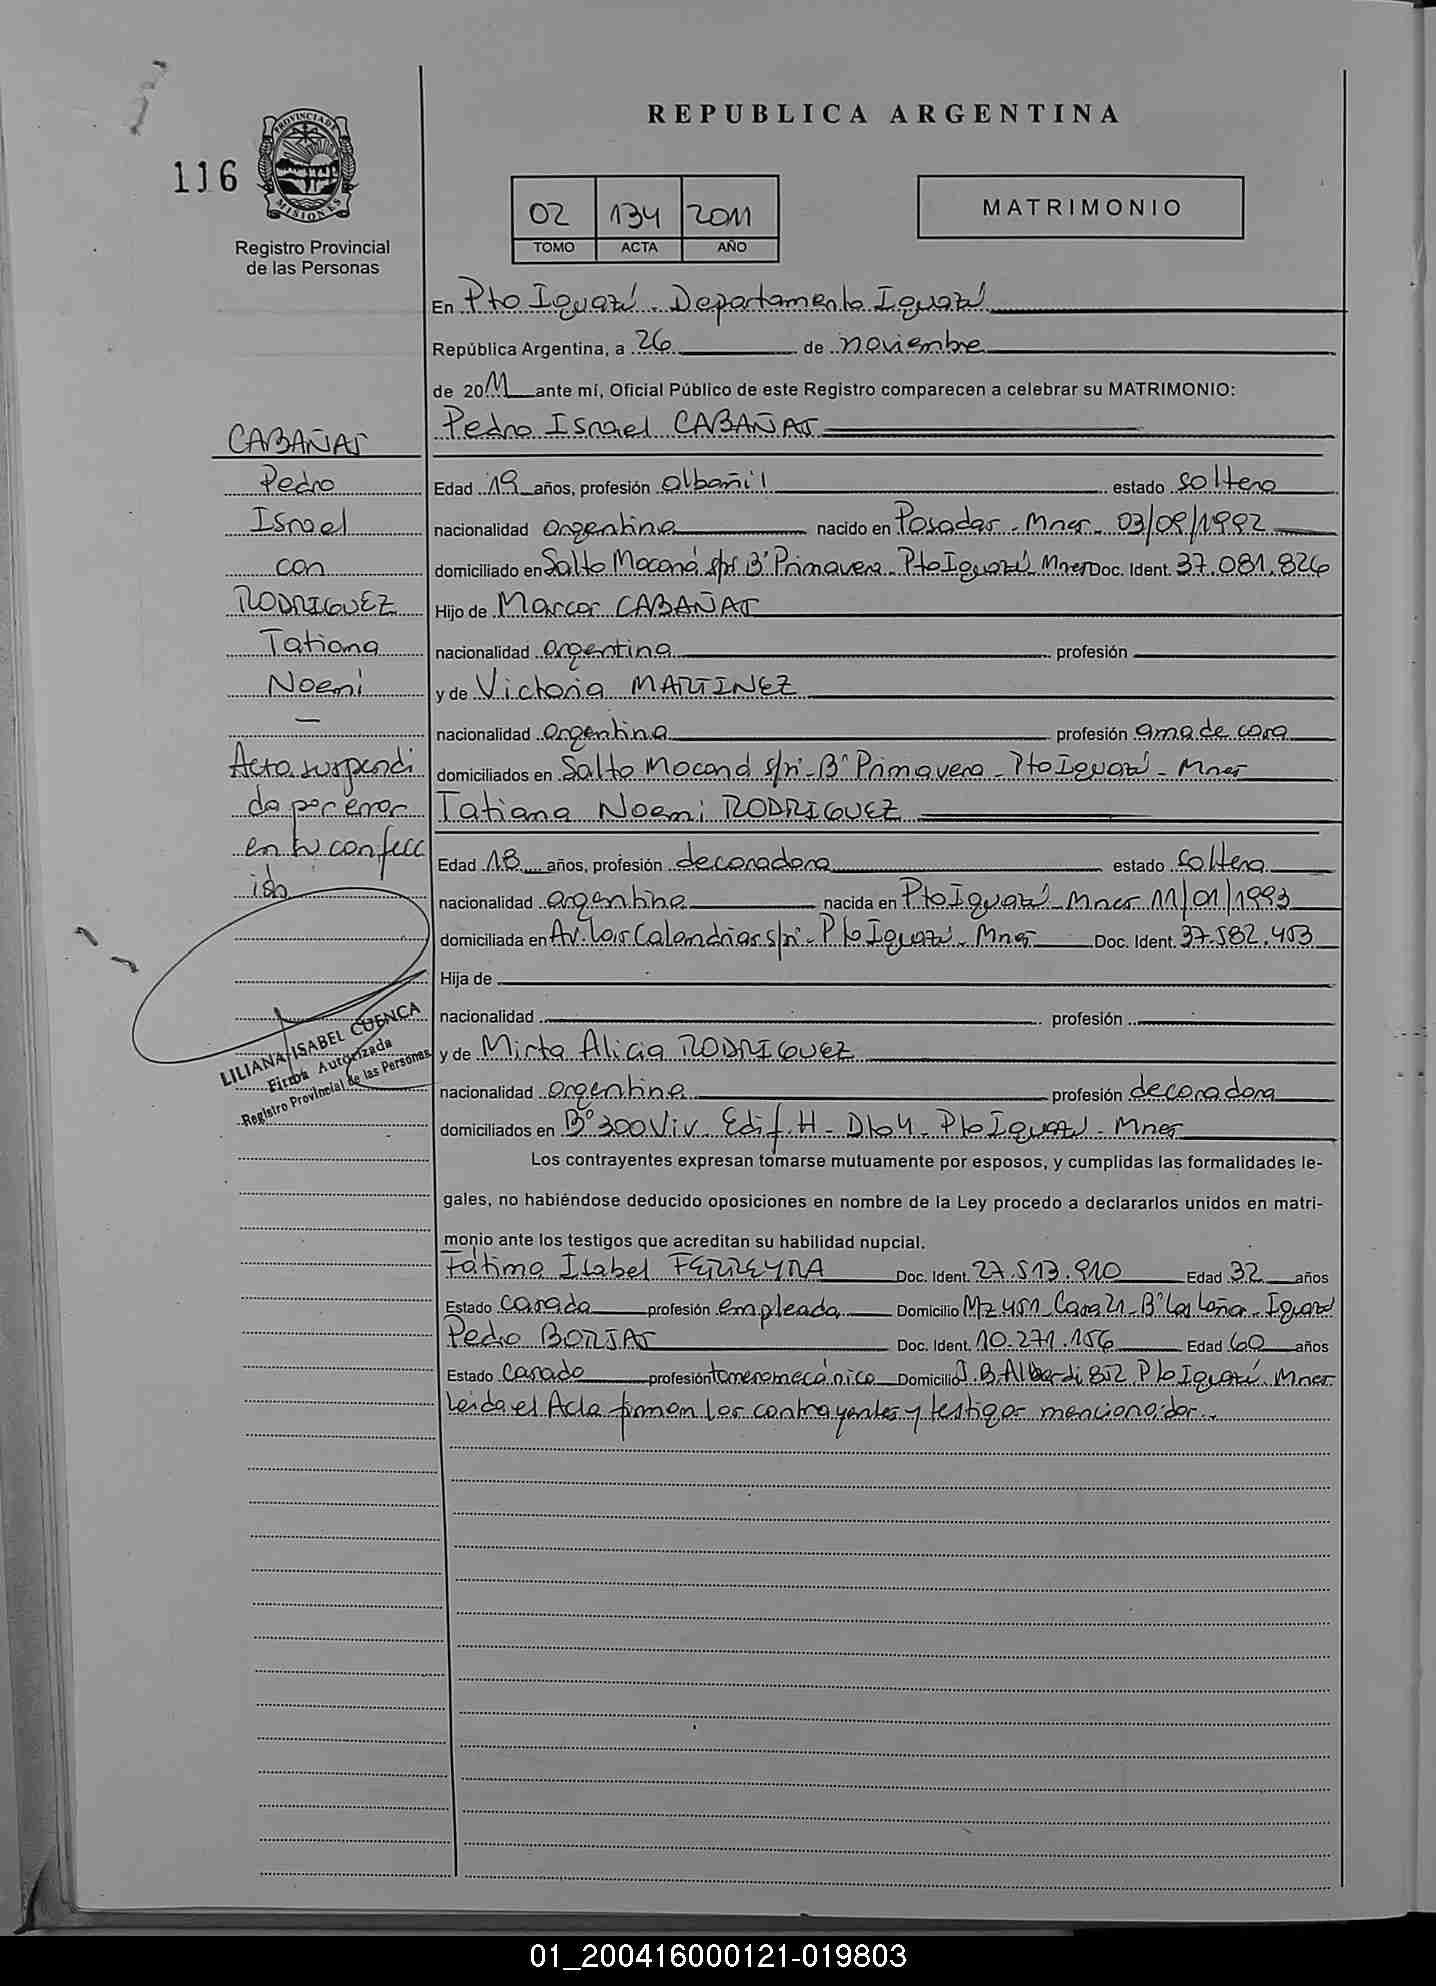 REPUBLICA ARGENTINA
116
PROVINCIA DE
MISIONES
Registro Provincial
de las Personas
02 134 2011
TOMO ACTA AÑO
MATRIMONIO
En Pto Iguazú - Departamento Iguazú
República Argentina, a 26 de noviembre
de 2011 ante mí, Oficial Público de este Registro comparecen a celebrar su MATRIMONIO:
Pedro Israel CABAÑAS
Edad 19 años, profesión albañil estado soltero
nacionalidad argentina nacido en Posadas - Mnes - 03/09/1992
domiciliado en Salto Moconá s/nº Bº Primavera - Pto Iguazú - Mnes Doc. Ident. 37.081.826
Hijo de Marcos CABAÑAS
nacionalidad argentina profesión
y de Victoria MARTINEZ
nacionalidad argentina profesión ama de casa
domiciliados en Salto Moconá s/nº - Bº Primavera - Pto Iguazú - Mnes
Tatiana Noemi RODRIGUEZ
Edad 18 años, profesión decoradora estado soltera
nacionalidad argentina nacida en Pto Iguazú - Mnes 11/01/1993
domiciliada en Av. Las Calandrias s/nº - Pto Iguazú - Mnes Doc. Ident. 37.582.453
Hija de
nacionalidad profesión
y de Mirta Alicia RODRIGUEZ
nacionalidad argentina profesión decoradora
domiciliados en Bº 300 Viv. Edif. H - Dto 4 - Pto Iguazú - Mnes
Los contrayentes expresan tomarse mutuamente por esposos, y cumplidas las formalidades le-
gales, no habiéndose deducido oposiciones en nombre de la Ley procedo a declararlos unidos en matri-
monio ante los testigos que acreditan su habilidad nupcial.
Fátima Isabel FERREYRA Doc. Ident. 27.513.910 Edad 32 años
Estado casada profesión empleada Domicilio Mz 451 Casa 21 - Bº Las Leñas - Iguazú
Pedro BORJAS Doc. Ident. 10.271.156 Edad 60 años
Estado casado profesión tornero mecánico Domicilio J.B. Alberdi 852 Pto Iguazú - Mnes
Leída el Acta firman los contrayentes y testigos mencionados.-
CABAÑAS
Pedro
Israel
con
RODRIGUEZ
Tatiana
Noemi
—
Acta suspendi
da por error
en su confecc
ión
LILIANA ISABEL CUENCA
Firma Autorizada
Registro Provincial de las Personas
01_200416000121-019803